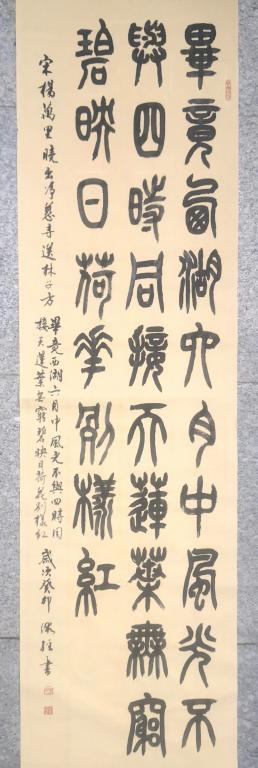 畢竟西湖六月中風光不
與四時同接天蓮葉無窮
碧映日荷花別樣紅
宋楊萬里曉出淨慈寺送林子方
畢竟西湖六月中風光不與四時同
接天蓮葉無窮碧映日荷花別樣紅
歲次癸卯 書